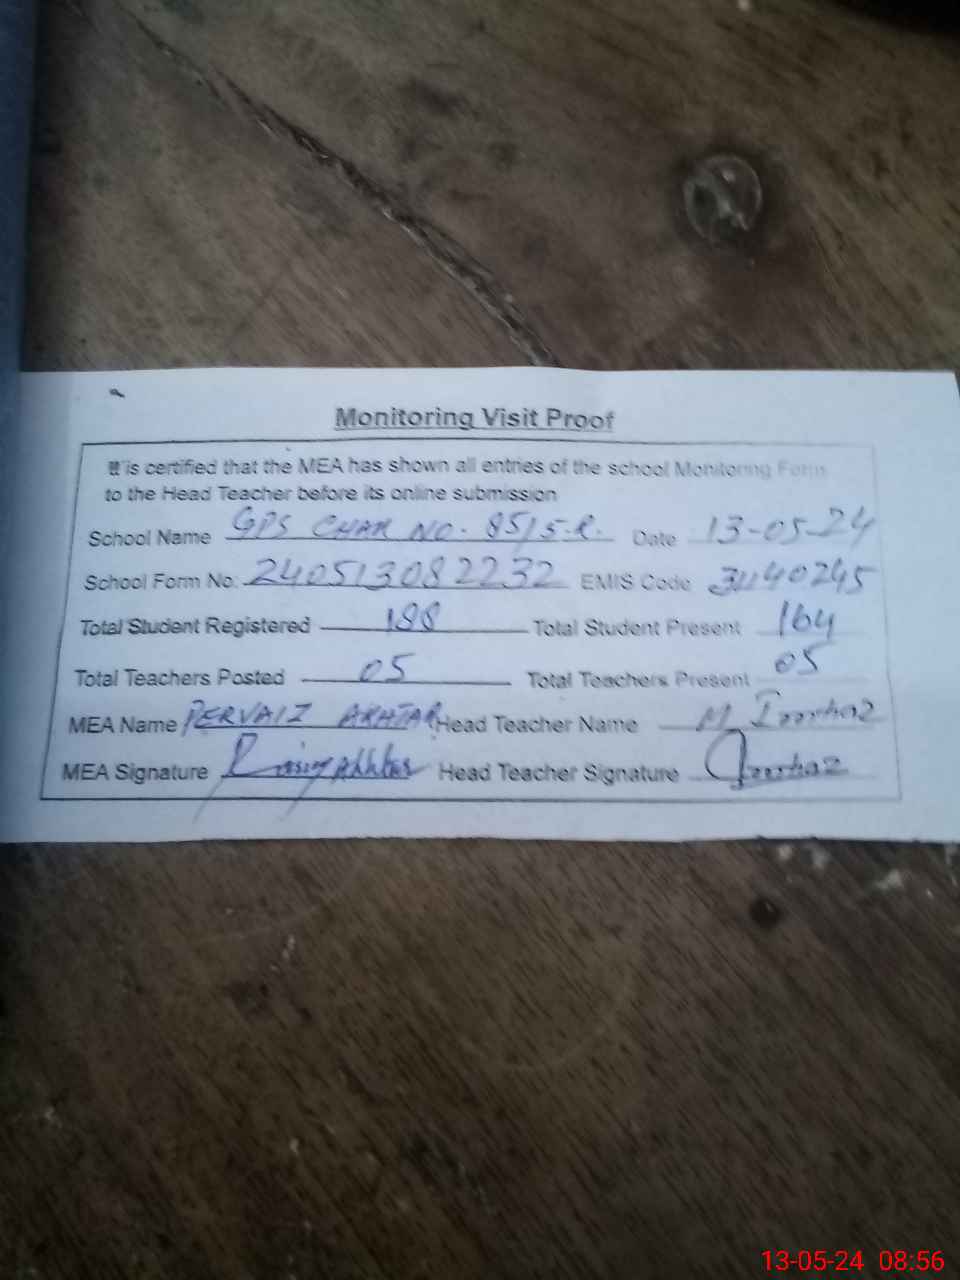 Monitoring Visit Proof
It is certified that the MEA has shown all entries of the school Monitoring Form
to the Head Teacher before its online submission
School Name GPS CHAK NO. 85/5-R. Date 13-05-24
School Form No. 240513082232 EMIS Code 31140245
Total Student Registered 188 Total Student Present 164
Total Teachers Posted 05 Total Teachers Present 05
MEA Name PERVAIZ AKHTAR Head Teacher Name M
MEA Signature Head Teacher Signature
13-05-24 08:56